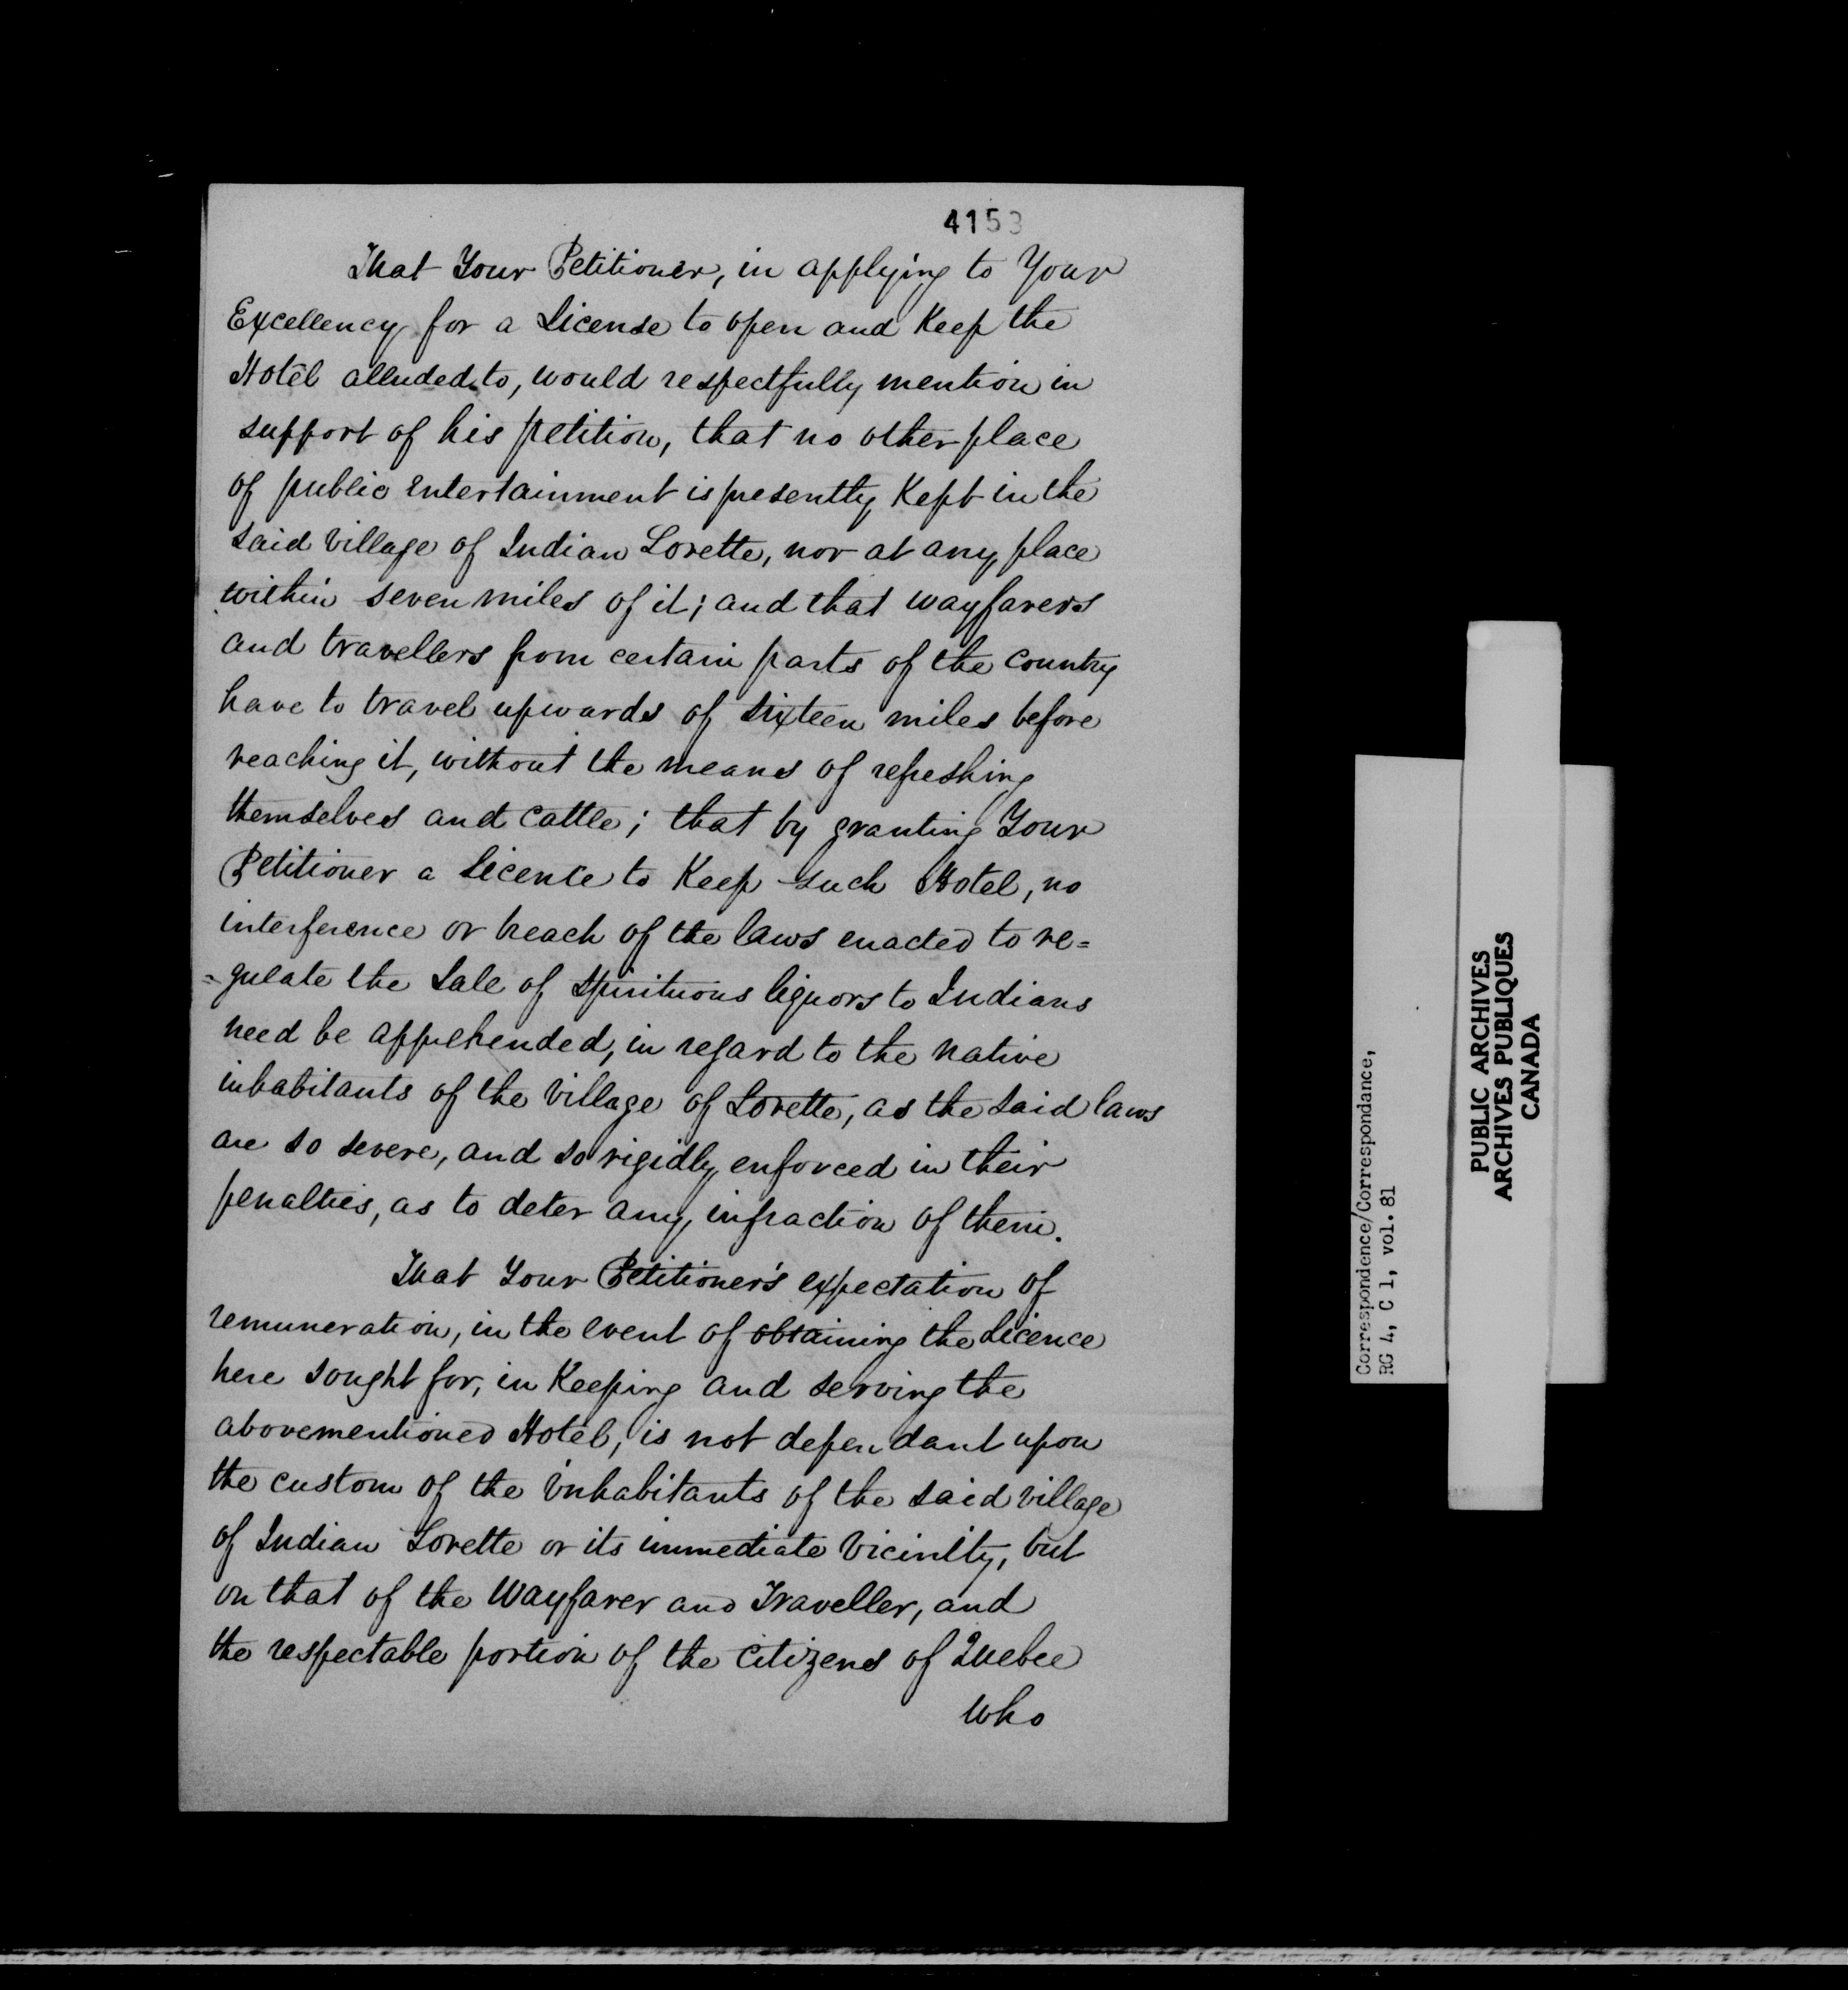 4153
That Your Petitioner, in applying to Your
Excellency for a License to open and Keep the
Hotel alluded to, would respectfully mention in
support of his petition, that no other place
of public entertainment is presently Kept in the
said village of Indian Lorette, nor at any place
within seven miles of it; and that wayfarers
and travellers from certain parts of the country
have to travel upwards of sixteen miles before
reaching it, without the means of refreshing
themselves and cattle; that by granting Your
Petitioner a licence to Keep such Hotel, no
interference or breach of the laws enacted to re=
=gulate the Sale of Spirituous liquors to Indians
need be apprehended, in regard to the native
inhabitants of the village of Lorette, as the said laws
are so severe, and so rigidly enforced in their
penalties, as to deter any infraction of them.
That Your Petitioner's expectation of
remuneration, in the event of obtaining the Licence
here sought for, in Keeping and serving the
abovementioned Hotel, is not dependant upon
the custom of the inhabitants of the said village
of Indian Lorette or its immediate vicinity, but
on that of the Wayfarer and Traveller, and
the respectable portion of the citizens of Quebec
who
Correspondence/Correspondance,
RG 4, C 1, vol. 81
PUBLIC ARCHIVES
ARCHIVES PUBLIQUES
CANADA